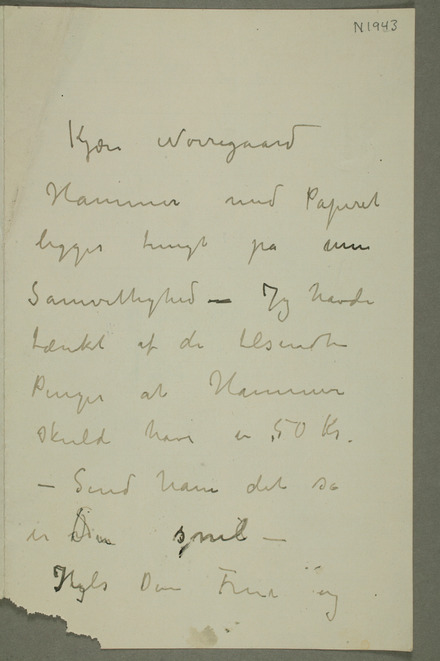 N1943
Kjære Nørregaard
Hammer med Papiret
ligger tungt på min
Samvittighed – Jeg havde
tænkt af de tilsendte
Penger at Hammer
skuld have er 50 Kr.
– Send ham det så
er Du snil –
Hils Din Frue og